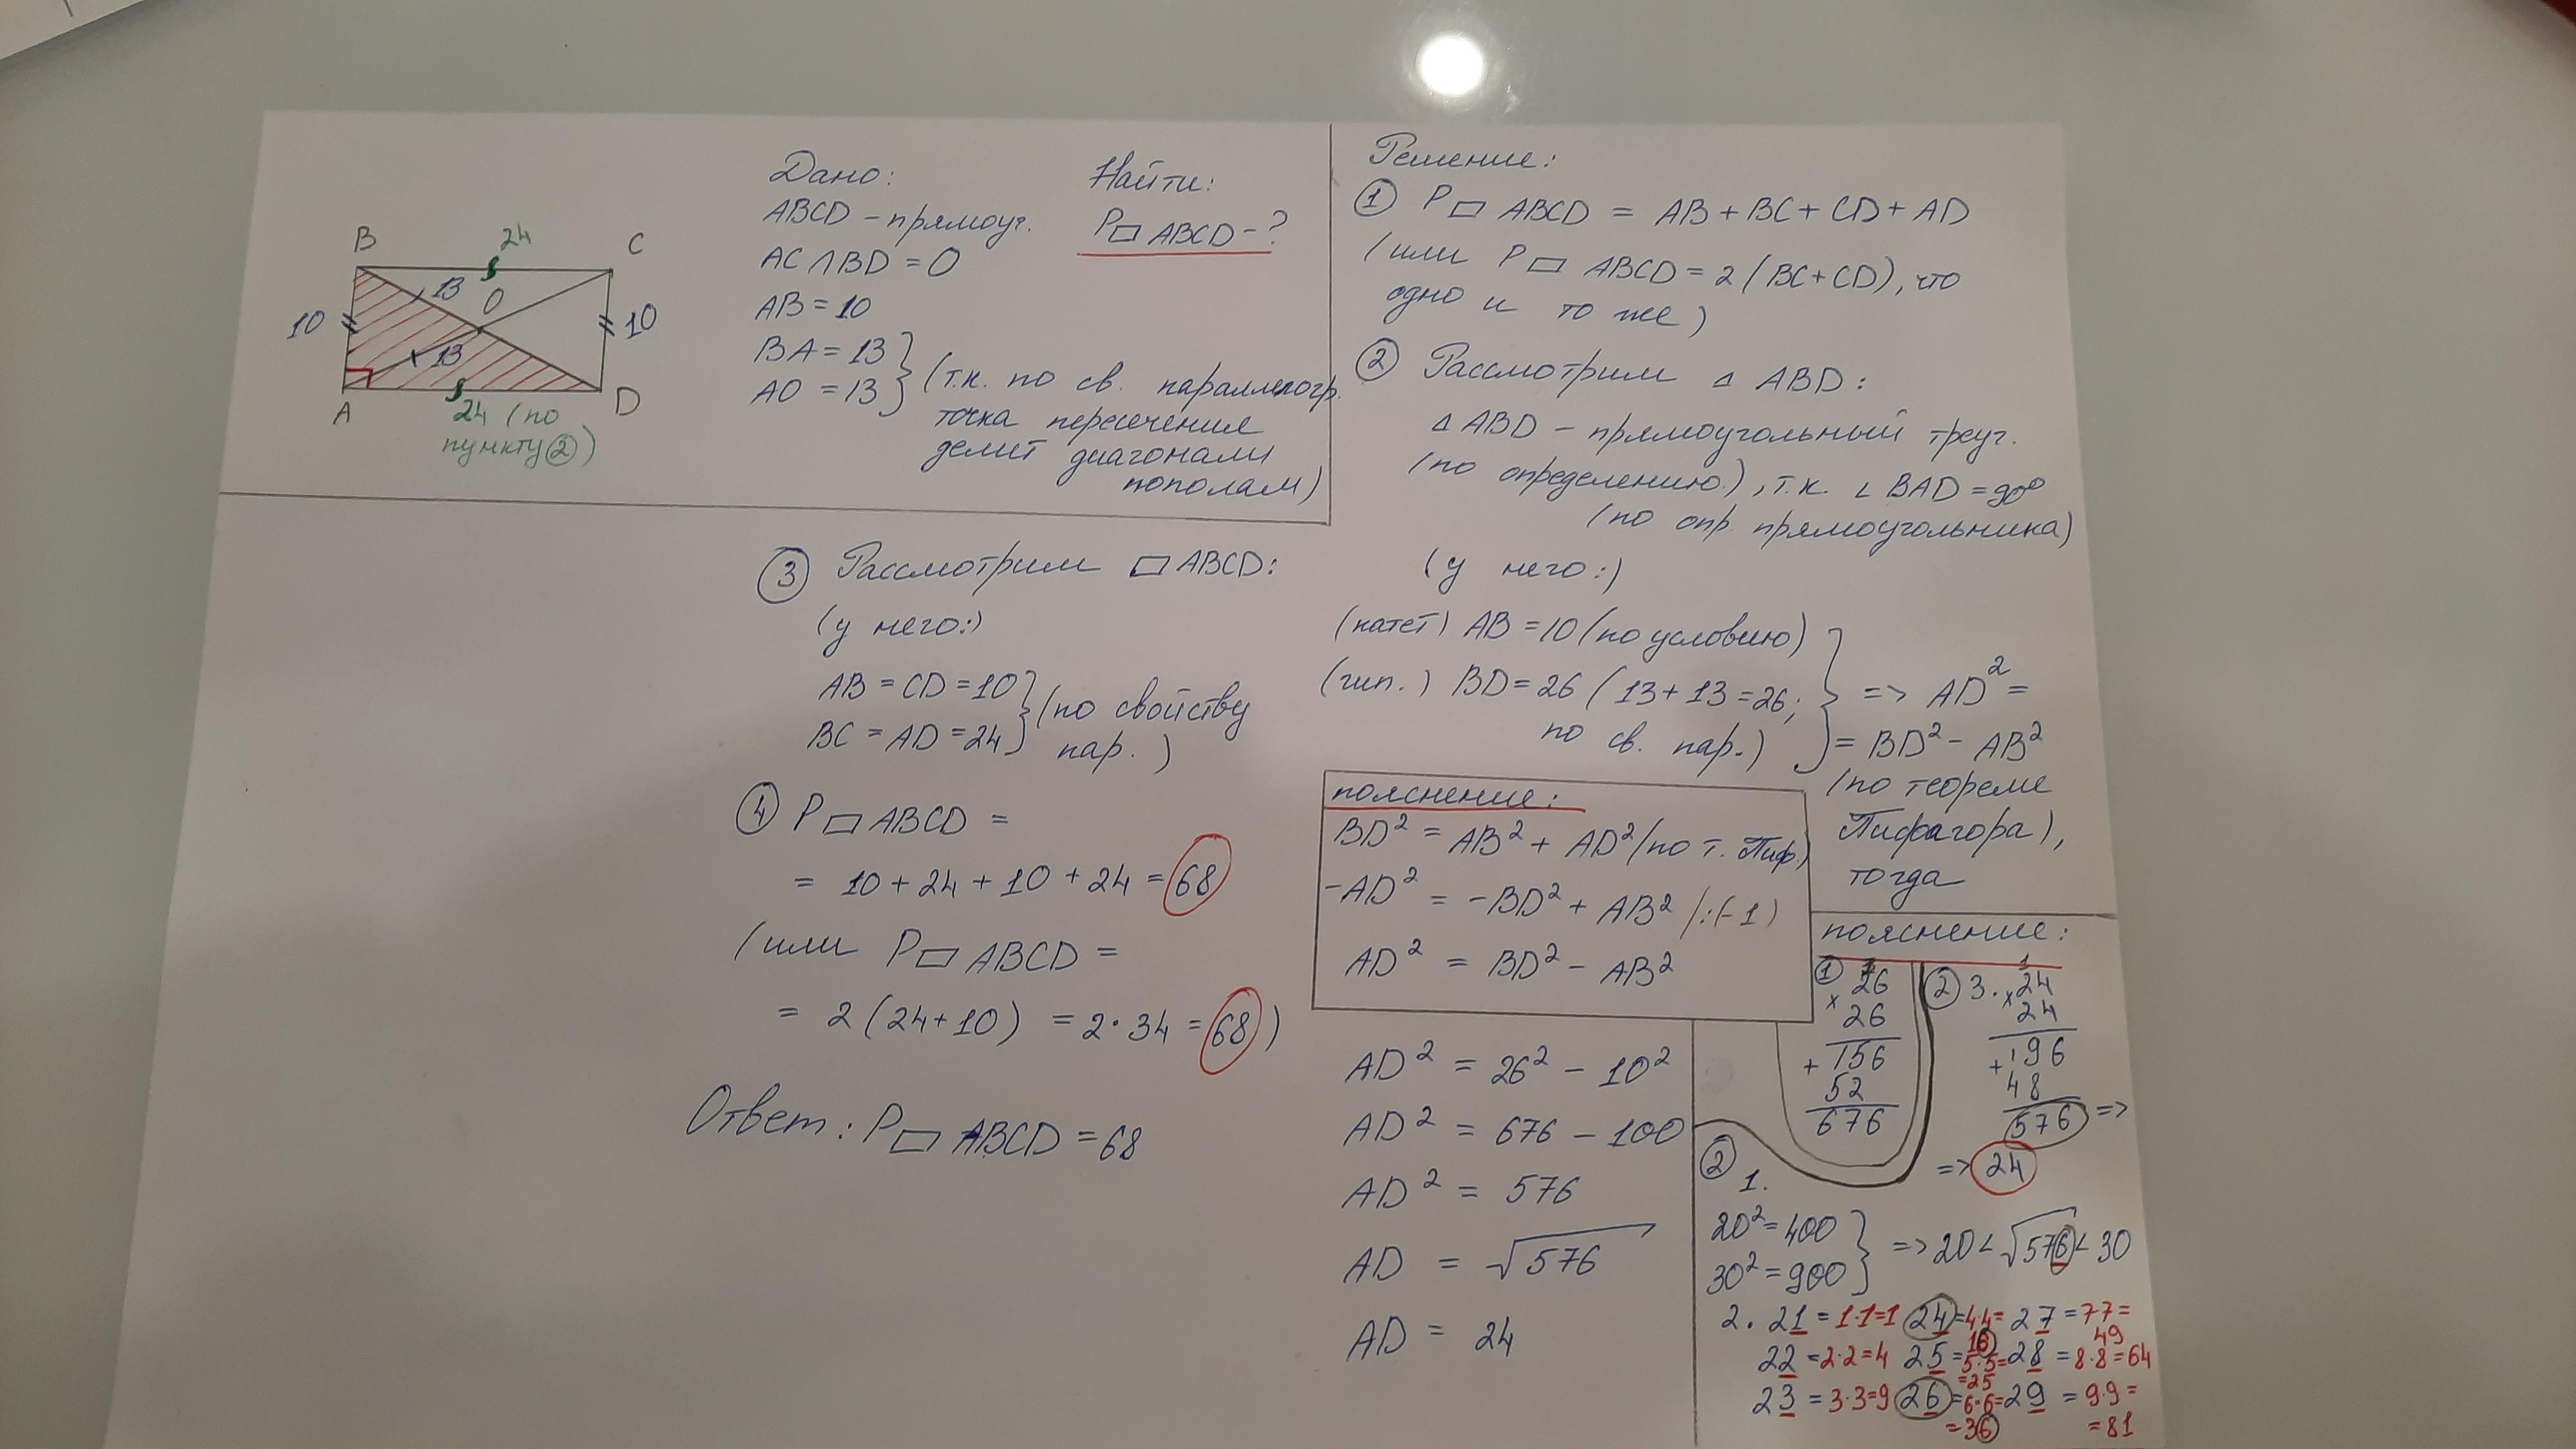 B
24
C
13
O
10
10
13
A
24 (по
D
пункту ②)
Дано:
ABCD – прямоуг.
AC ∩ BD = O
AB = 10
BA = 13
AO = 13
} (т.к. по св. параллелогр.
точка пересечения
делит диагонали
пополам)
Найти:
P▭ ABCD – ?
Решение:
① P▭ ABCD = AB + BC + CD + AD
(или P▭ ABCD = 2 (BC + CD), что
одно и то же)
② Рассмотрим △ ABD:
△ ABD – прямоугольный треуг.
(по определению), т.к. ∠ BAD = 90°
(по опр. прямоугольника)
(у него:)
(катет) AB = 10 (по условию)
(гип.) BD = 26 (13 + 13 = 26;
по св. пар.)
} => AD² =
= BD² – AB²
(по теореме
Пифагора),
тогда
пояснение:
BD² = AB² + AD² (по т. Пиф.)
–AD² = –BD² + AB² /:(–1)
AD² = BD² – AB²
AD² = 26² – 10²
AD² = 676 – 100
AD² = 576
AD = √576
AD = 24
пояснение:
①
26
× 26
+ 156
52
676
② 3.
1
× 24
24
+ 196
48
576 =>
=> 24
②
1.
20² = 400
30² = 900
} => 20 < √576 < 30
2. 21 = 1·1=1 24 = 4·4= 16 27 = 7·7= 49
22 = 2·2=4 25 = 5·5= =25 28 = 8·8=64
23 = 3·3=9 26 = 6·6= =36 29 = 9·9= =81
③ Рассмотрим ▭ ABCD:
(у него:)
AB = CD = 10
BC = AD = 24
} (по свойству
пар.)
④ P▭ ABCD =
= 10 + 24 + 10 + 24 = 68
(или P▭ ABCD =
= 2 (24 + 10) = 2 · 34 = 68)
Ответ: P▭ ABCD = 68